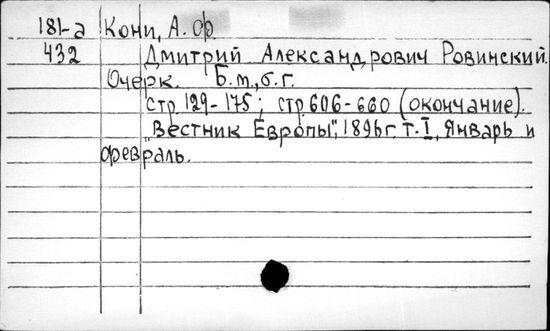 181-а Кони, А. Ф.
432 Дмитрий Александрович Ровинский.
Очерк. Б. м., б. г.
стр. 129-175; стр. 606-660 (окончание).
"Вестник Европы", 1896 г. т. I, Январь и
февраль.